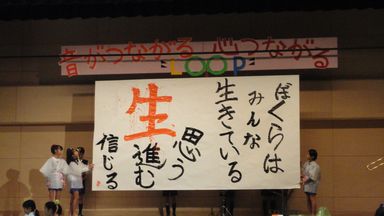 音がつながる 心つながる
"LOOP"
ぼくらは
みんな
生きている
思う
生進む
信じる